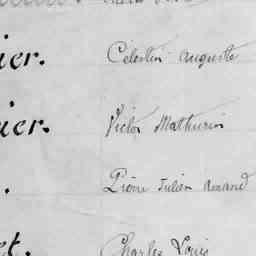 ier. Célestin Auguste
ier. Victor Mathurin
. Pierre Julien Amand
et. Charles Louis